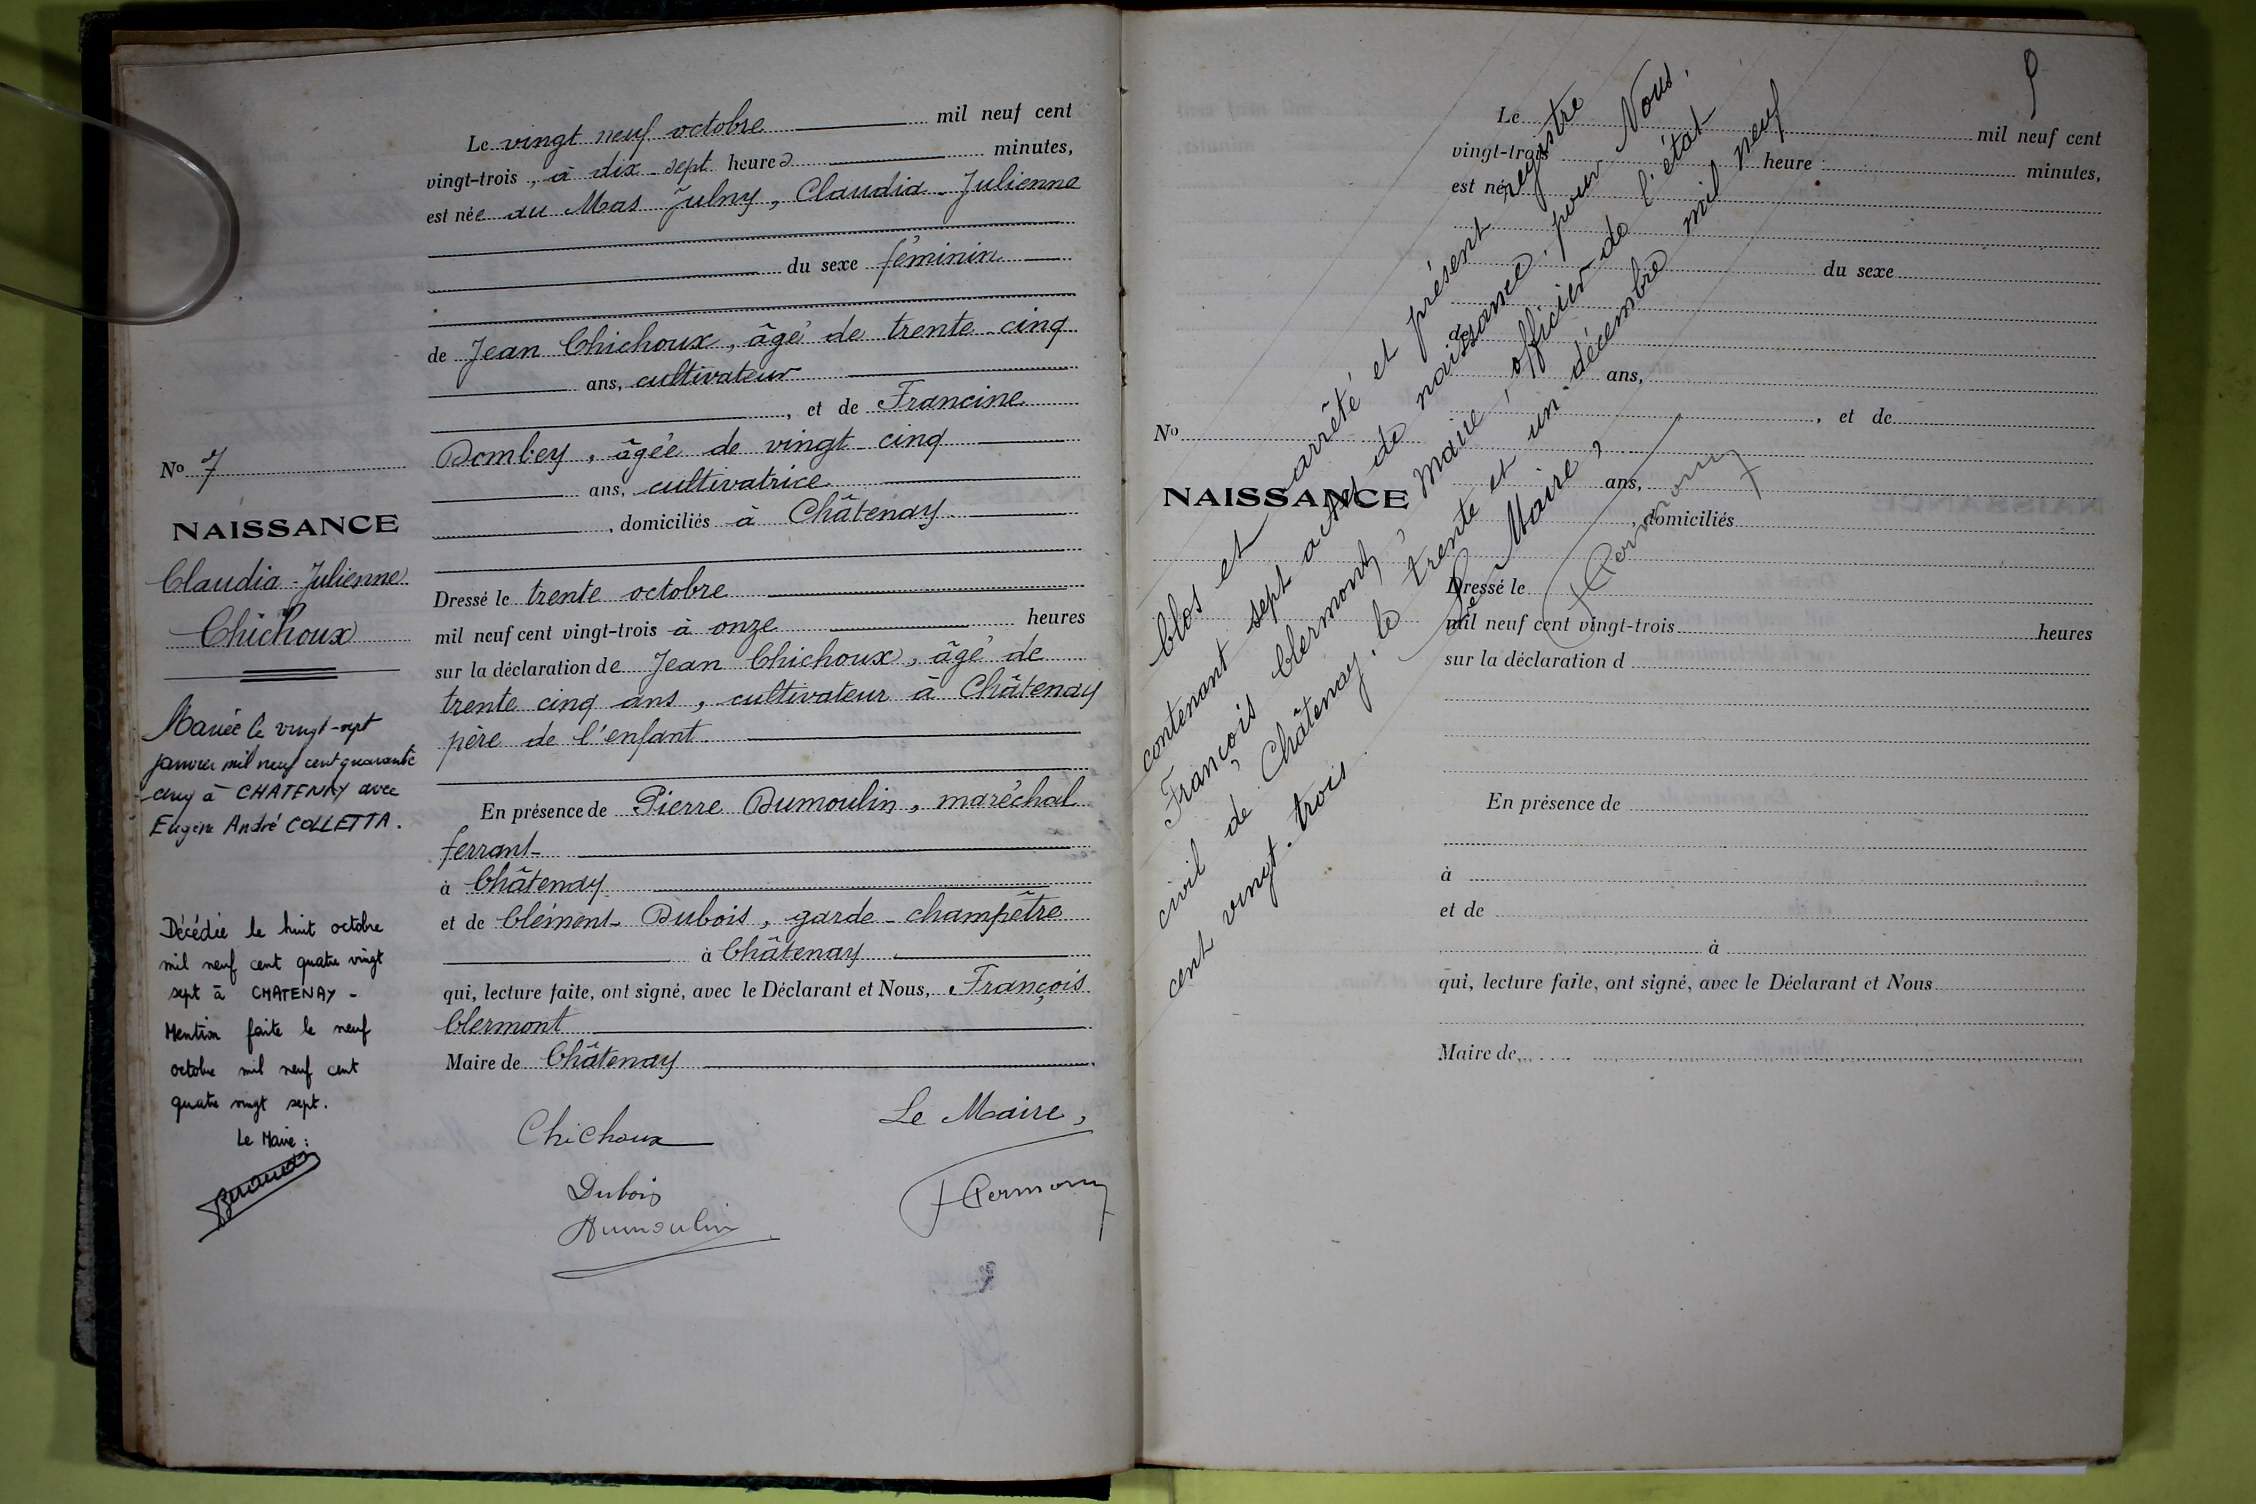 Le vingt neuf octobre mil neuf cent
vingt-trois, à dix-sept heures minutes,
est née au Mas Julny, Claudia-Julienne
du sexe féminin
de Jean Chichoux, âgé de trente-cinq
ans, cultivateur
, et de Francine
Dombey, âgée de vingt-cinq
ans, cultivatrice
, domiciliés à Châtenay
Dressé le trente octobre
mil neuf cent vingt-trois à onze heures
sur la déclaration de Jean Chichoux, âgé de
trente cinq ans, cultivateur à Châtenay
père de l'enfant.
En présence de Pierre Dumoulin, maréchal
ferrant
à Châtenay
et de Clément Dubois, garde-champêtre
à Châtenay
qui, lecture faite, ont signé, avec le Déclarant et Nous, François
Clermont
Maire de Châtenay
Chichoux
Le Maire,
Dubois
Dumoulin
FClermont
No 7
NAISSANCE
Claudia-Julienne
Chichoux
Mariée le vingt-sept
janvier mil neuf cent quarante
cinq à CHATENAY avec
Eugène André COLLETTA.
Décédée le huit octobre
mil neuf cent quatre vingt
sept à CHATENAY -
Mention faite le neuf
octobre mil neuf cent
quatre vingt sept.
Le Maire:
9
Le mil neuf cent
vingt-trois heure minutes,
est né
du sexe
de
ans,
, et de
ans,
, domiciliés
No
NAISSANCE
Dressé le
mil neuf cent vingt-trois heures
sur la déclaration d
En présence de
à
et de
à
qui, lecture faite, ont signé, avec le Déclarant et Nous
Maire de
Clos et arrêté et présent registre
contenant sept actes de naissance, pour Nous,
François Clermont, maire, officier de l'état
civil de Châtenay, le trente et un décembre mil neuf
cent vingt-trois
Le Maire,
FClermont